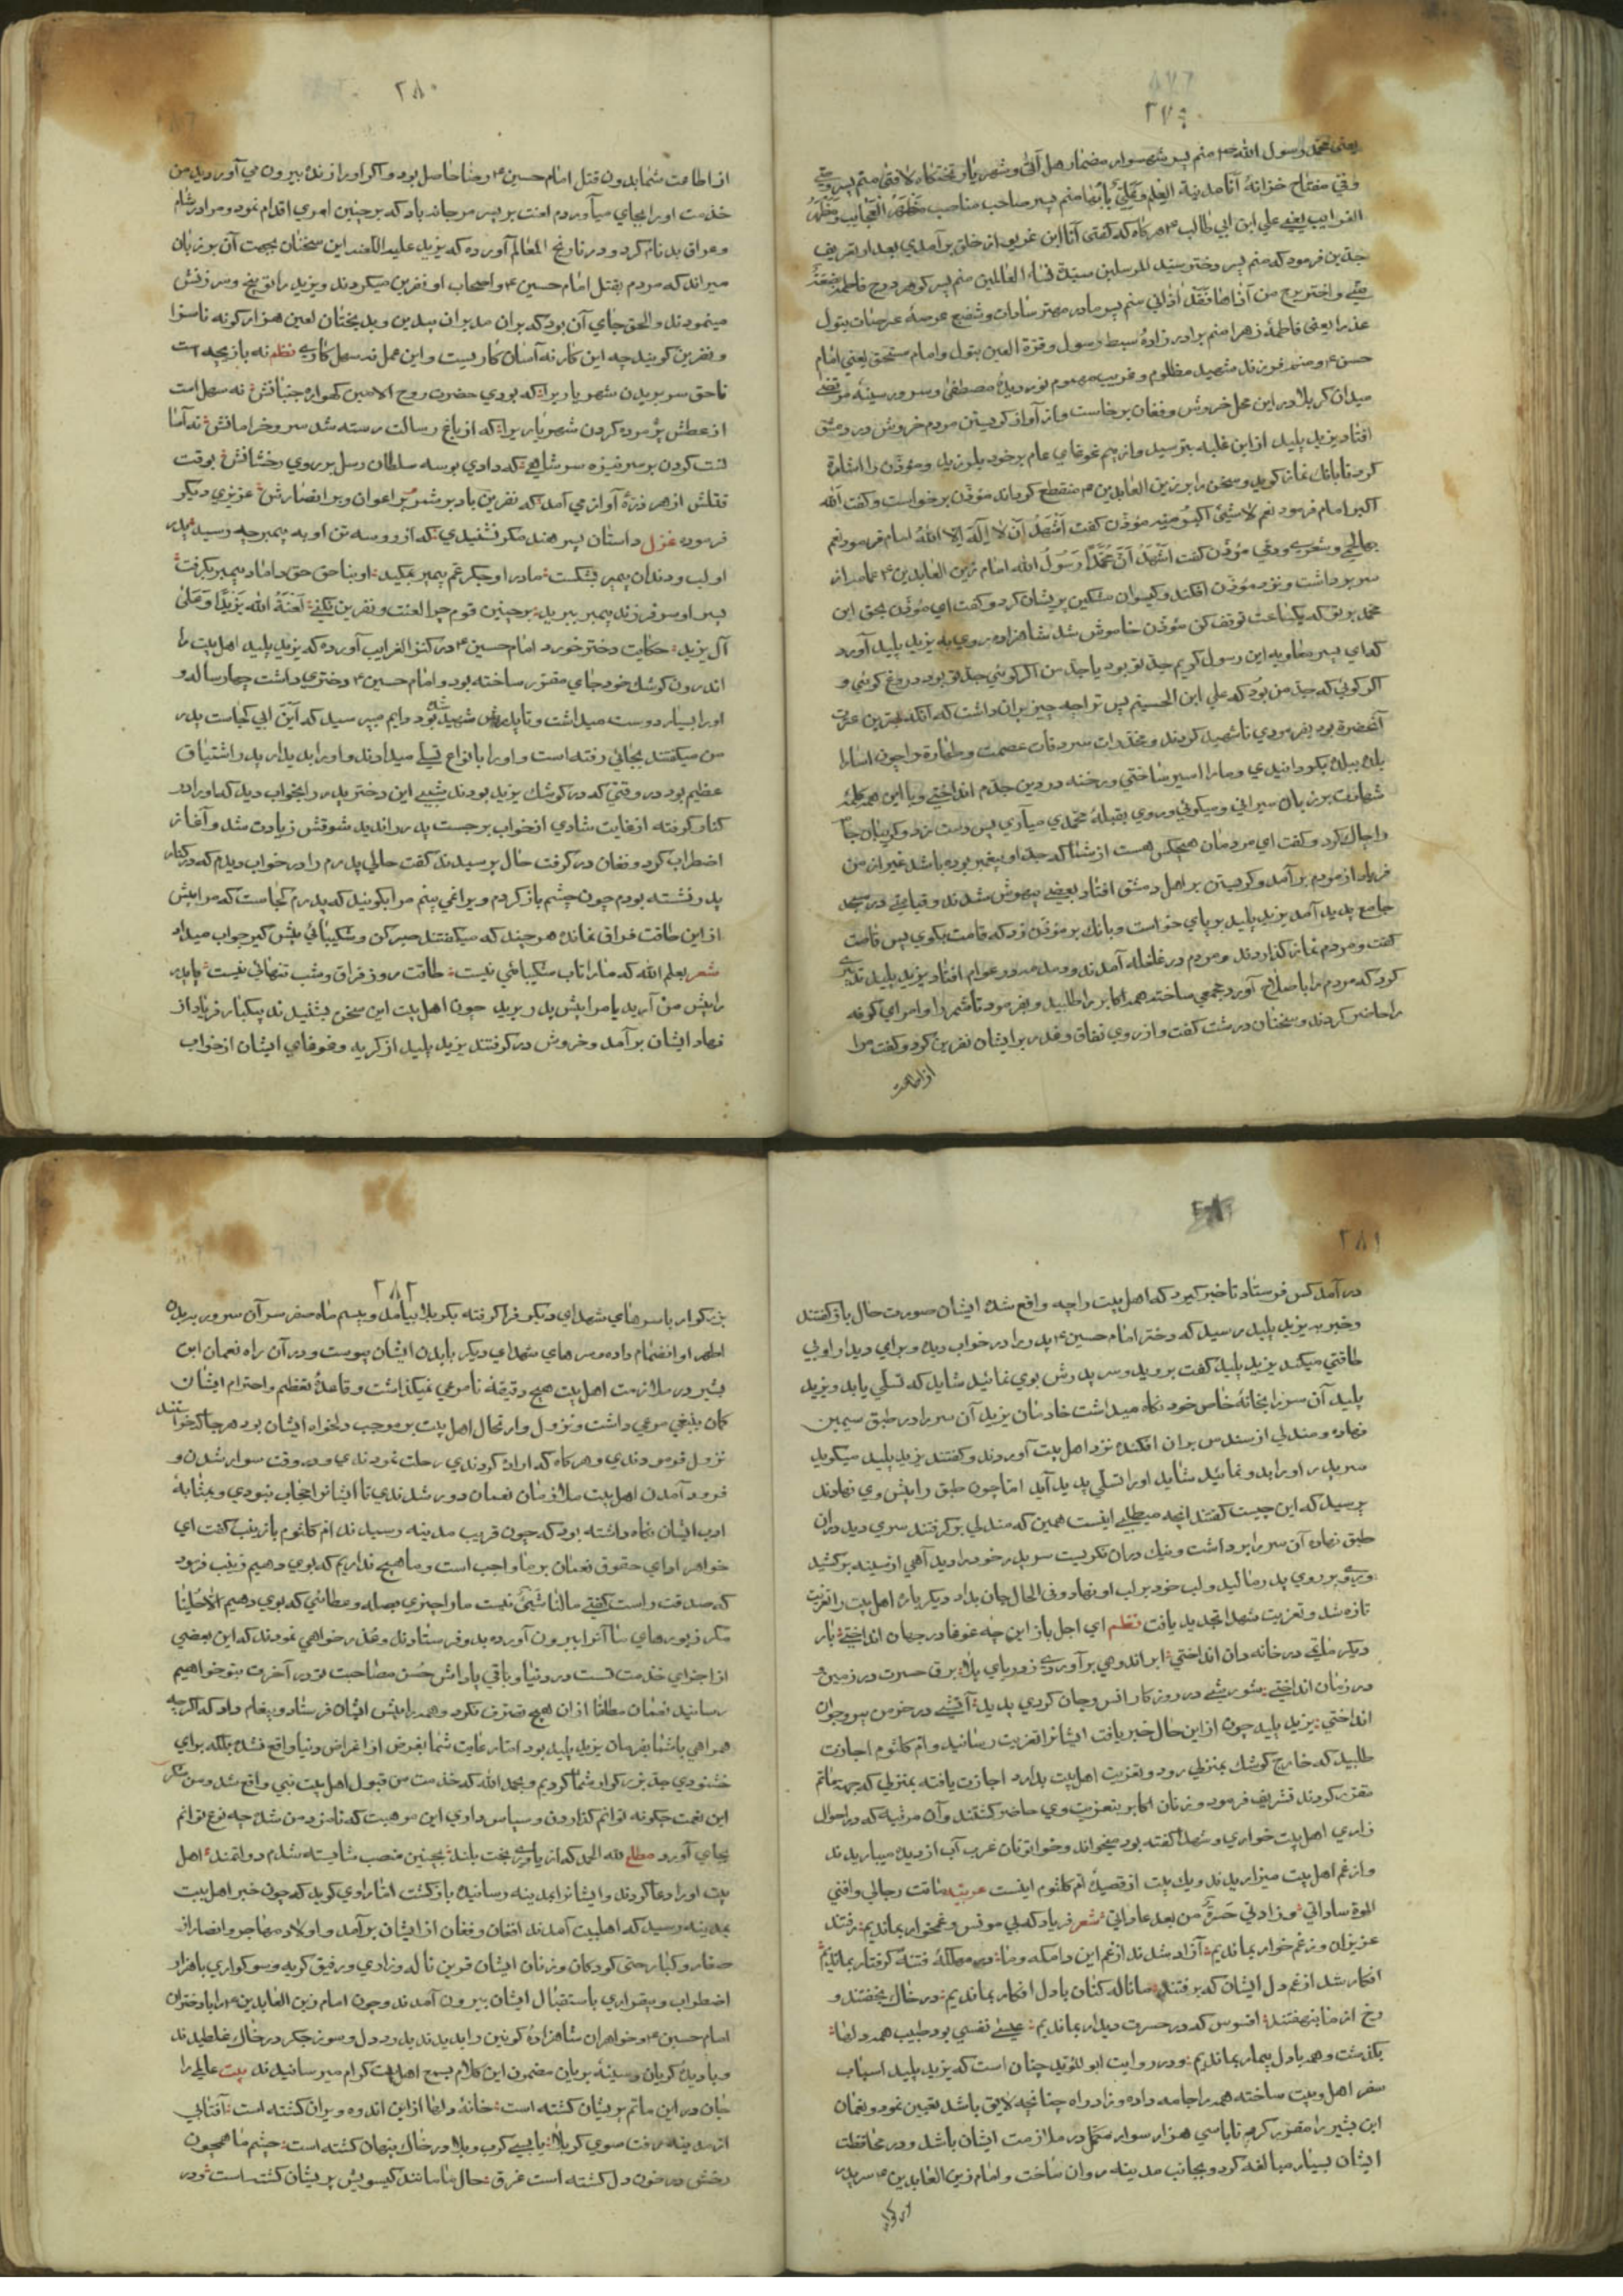 ۲۷۹
یعنی محمد رسول الله ص منم پسر شهسوار مضمار هل اتی و شهریار تختگاه لا فتی منم پسر
وفی مفتاح خزانهٔ أنا مدینة العلم وعلیٌّ بابها منم پسر صاحب مناصب مظهر العجایب ومظهر
الغرایب یعنی علی ابن ابی طالب ۴ هر کاه که کفتی أنا ابن غریو از خلق بر آمدی بعد از تعریف
جدین فرمود که منم پسر دختر سید المرسلین سیدة نساء العالمین منم پسر کوهر درج فاطمة بضعة
منی و اختر برج من آذاها فقد آذانی منم پسر مادر مهتر سادات و شفیع عرصهٔ عرصات بتول
عذرا یعنی فاطمهٔ زهرا منم برادر زادهٔ سبط رسول و قرة العین بتول و امام مستحق یعنی امام
حسن ۴ و منم فرزند شهید مظلوم و غریب مهموم نور دیدهٔ مصطفی و سرور سینهٔ مرتضی
میدان کربلا در این محل خروش و فغان برخاست و از آواز کریستن مردم خروش در دمشق
افتاد یزید پلید از این غلبه بترسید و از بیم غوغای عام بر خود بلرزید و مؤذن را اشارة
کرد تا بانک نماز کوید و سخن را بر زین العابدین ۴ منقطع کرداند مؤذن برخواست و کفت الله
اکبر امام فرمود نعم لا شیئ اکبر منه مؤذن کفت اشهد ان لا اله الا الله امام فرمود نعم
مؤذن کفت اشهد ان محمدا رسول الله امام زین العابدین ۴ عمامه از
سر برداشت و نزد مؤذن افکند و کیسوان مشکین پریشان کرد و کفت ای مؤذن بحق این
محمد بر تو که یکساعت توقف کن مؤذن خاموش شد شاهزاده روی به یزید پلید آورد
که ای پسر معاویه این رسول کریم جد تو بود یا جد من اکر کوئی جد تو بود دروغ کوئی و
اکر کوئی که جد من بود که علی ابن الحسینم پس ترا چه چیز بر ان داشت که آنکه بهترین عترت
آنحضرة بود بفرمودی تا شهید کردند و مخدرات سرادقات عصمت و طهارة را چون اسارا
بلد ببلد بکردانیدی و ما را اسیر ساختی و رخنه در دین جدم انداختی و با این همه کلمهٔ
شهادت بر زبان میرانی و میکوئی و روی بقبلهٔ محمدی میآری پس دست زد و کریبان جا
را چاک کرد و کفت ای مردمان هیچکس هست از شما که جد او پیغمبر بوده باشد غیر از من
فریاد از مردم بر آمد و کریستن بر اهل دمشق افتاد بعضی بیهوش شدند و قیامتی در مسجد
جامع پدید آمد یزید پلید بر پای خواست و بانک بر مؤذن زد که قامت بکوی پس قامت
کفت و مردم نماز کذاردند و مردم در غلغله آمدند
کرد که مردم را با صلاح آورد جمعی ساخته همه اکابر را طلبید و بفرمود تا شمر را و امرای کوفه
را حاضر کردند و سخنان درشت کفت و از روی نفاق و غدر بر ایشان نفرین کرد و کفت مرا
از اطاعت
۲۸۰
از اطاعت شما بدون قتل امام حسین ۴ رضا حاصل بود و اکر او را زنده بیرون می آوردید من
خدمت او را بجای میآوردم لعنت بر پسر مرجانه باد که بر چنین امری اقدام نمود و مرا در شام
و عراق بدنام کرد و در تاریخ المعالم آورده که یزید علیه اللعنه این سخنان بجهت آن بر زبان
میراند که مردم بقتل امام حسین ۴ و اصحاب او نفرین میکردند و یزید را توبیخ و سرزنش
مینمودند و الحق جای آن بود که بر ان مدبران بیدین و بدبختان لعین هزار کونه ناسزا
و نفرین کویند چه این کار نه آسان کاریست و این عمل نه سهل کاری نظم نه بازیچه است
ناحق سر بریدن شهریاریرا که بودی حضرت روح الامین کهواره جنبانش نه سهل است
از عطش پژمرده کردن شهریاریرا که از باغ رسالت رسته شد سرو خرامانش نه آسا
نست کردن بر سر نیزه سر شاهی که دادی بوسه سلطان رسل بر روی رخشانش بوقت
قتلش از هر ذرهٔ آواز می آمد که نفرین باد بر شمر و بر اعوان و بر انصارش عزیزی دیکر
فرموده غزل داستان پسر هند مکر نشنیدی که از او و سه تن او به پیمبر چه رسید پدر
او لب و دندان پیمبر بشکست مادر او جکر عم پیمبر بمکید او بناحق حق داماد پیمبر بکرفت
پسر او سر فرزند پیمبر ببرید بر چنین قوم چرا لعنت و نفرین نکنی لعنة الله یزیدا و علی
آل یزید حکایت دختر خورد امام حسین ۴ در کنز الغرایب آورده که یزید پلید اهل بیت را
اندرون کوشک خود جای مقرر ساخته بود و امام حسین ۴ دختری داشت چهار ساله و
او را بسیار دوست میداشت و تا پدرش شهید شده بود دایم میپرسید که این ابی کجاست پدر
من میکفتند بجائی رفته است و او را بانواع تسلی میدادند و او را بدیدار پدر اشتیاق
عظیم بود در وقتی که در کوشک یزید بودند شبی این دختر پدر را بخواب دید که او را در
کنار کرفته از غایت شادی از خواب برجست پدر را ندید شوقش زیادت شد و آغاز
اضطراب کرد و فغان در کرفت حال پرسیدند کفت حالی پدرم را در خواب دیدم که در کنار
پدر نشسته بودم چون چشم باز کردم ویرا نمی بینم مرا بکوئید که پدرم کجاست که مرا بیش
از این طاقت فراق نمانده هر چند که میکفتند صبر کن و شکیبائی پیش کیر جواب میداد
شعر یعلم الله که مارا تاب شکیبائی نیست طاقت روز فراق و شب تنهائی نیست یا پدر
را پیش من آرید یا مرا پیش پدر برید چون اهل بیت این سخن بشنیدند بیکبار فریاد از
نهاد ایشان بر آمد و خروش در کرفتند یزید پلید از کریه و غوغای ایشان از خواب
۲۸۱
در آمد کس فرستاد تا خبر کیرد که اهل بیت را چه واقع شده ایشان صورت حال باز کفتند
و خبر به یزید پلید رسید که دختر امام حسین ۴ پدر را در خواب دیده و برای دیدار او بی
طاقتی میکند یزید پلید کفت بروید و سر پدرش بوی نمائید شاید که تسلی یابد و یزید
پلید آن سر را بخانهٔ خاص خود نکاه میداشت خادمان یزید آن سر را در طبق سیمین
نهاده و مندیلی از سندس بر ان افکنده نزد اهل بیت آوردند و کفتند یزید پلید میکوید
سر پدر را بدو نمائید شاید او را تسلی پدید آید اما چون طبق را پیش وی نهادند
پرسید که این چیست کفتند انچه میطلبی اینست همین که مندیل بر کرفتند سری دید در ان
طبق نهاده آن سر را برداشت و نیک در ان نکریست سر پدر خود را دید آهی از سینه برکشید
و روی بر روی پدر مالید و لب خود بر لب او نهاد و فی الحال جان بداد دیکر باره اهل بیت را تعزیت
تازه شد و تعزیت شهدا تجدید یافت نظم ای اجل باز این چه غوغا در جهان انداختی بار
دیکر ماتمی در خانه دان انداختی ابر اندوهی بر آوردی ز دریای بلا برق حسرت در زمین و
در زمان انداختی شورشی در روزکار انس و جان کردی پدید آتشی در خرمن پیر و جوان
انداختی یزید پلید چون از این حال خبر یافت ایشانرا تعزیت رسانید و ام کلثوم اجازت
طلبید که خارج کوشک بمنزلی رود و تعزیت اهل بیت بدارد اجازت یافته بمنزلی که جهة ماتم
مقرر کردند تشریف فرمود و زنان اکابر بتعزیت وی حاضر کشتند و آن مرثیه که در احوال
زاری اهل بیت خواری و شهدا کفته بود میخواند و خواتونان عرب آب از دیده میباریدند
و از غم اهل بیت میزاریدند و یک بیت از قصیدهٔ ام کلثوم اینست عربیه ماتت رجالی وافنی
الموة ساداتی و زادنی حسرة من بعد عاداتی شعر فریاد که بی مونس و غمخوار بماندیم رفتند
عزیزان و ز غم خوار بماندیم آزاد شدند از غم این دامکه و ما در مهلکهٔ فتنه کرفتار بماندیم
افکار شد از غم دل ایشان که برفتند ما ناله کنان با دل افکار بماندیم در خاک بخفتند و
رخ از ما بنهفتند افسوس که در حسرت دیدار بماندیم عیسی نفسی بود طبیب همه دلها
بکذشت و همه با دل بیمار بماندیم و در روایت ابو المؤید چنان است که یزید پلید اسباب
سفر اهل و بیت ساخته همه را جامه داده و زاد راه چنانچه لایق باشد تعیین نمود و نعمان
ابن بشیر را مقرر کرد تا با سی هزار سوار مکمل در ملازمت ایشان باشد و در محافظت
ایشان بسیار مبالغه کرد و بجانب مدینه روان ساخت و امام زین العابدین ۴ سر پدر
۲۸۲
بزرکوار با سرهای شهدای دیکر فرا کرفته بکربلا بیآمد و بیستم ماه صفر سر آن سرور ببدن
اطهر او انضمام داده و سرهای شهدای دیکر با بدن ایشان پیوست و در آن راه نعمان ابن
بشیر در ملازمت اهل بیت هیچ دقیقهٔ نامرعی نمیکذاشت و قاعدهٔ تعظیم و احترام ایشان
کمان ینبغی مرعی داشت و نزول و ارتحال اهل بیت بر موجب دلخواه ایشان بود هر جا که خواستند
نزول فرمودندی و هر کاه که اراده کردندی رحلت نمودندی و در وقت سوار شدن و
فرود آمدن اهل بیت ملازمان نعمان دور شدندی تا ایشانرا حجاب نبودی و بمثابهٔ
ادب ایشان نکاه داشته بود که چون قریب مدینه رسیدند ام کلثوم با زینب کفت ای
خواهر ادای حقوق نعمان بر ما واجب است و ما هیچ نداریم که بوی دهیم زینب فرمود
که صدقت راست کفتی مالنا شیئ نیست ما را چیزی بصله و عطائی که بوی دهیم الا حلینا
مکر زیورهای ما آنرا بیرون آورده بدو فرستادند و عذر خواهی نمودند که این بعضی
از اجزای خدمت تست در دنیا و باقی پاداش حسن مصاحبت تو در آخرت بتو خواهیم
رسانید نعمان مطلقا از ان هیچ تصرف نکرد و همه را پیش ایشان فرستاد و پیغام داد که اکر چه
همراهی با شما بفرمان یزید پلید بود اما رعایت شما بغرض از اغراض دنیا واقع نشد بلکه برای
خشنودی جد بزرکوار شما کردیم و بحمد الله که خدمت من قبول اهل بیت نبی واقع شد و من شکر
این نعمت چکونه توانم کذارد و سپاس داری این موهبت که نامزد من شده چه نوع توانم
بجای آورد مطلع لله الحمد که از یاری بخت بلند بچنین منصب شایسته شدم دولتمند اهل
بیت او را دعا کردند و ایشانرا بمدینه رسانیده باز کشت اما راوی کوید که چون خبر اهل بیت
بمدینه رسید که اهلبیت آمدند افغان و فغان از ایشان بر آمد و اولاد مهاجر و انصار از
صغار و کبار حتی کودکان و زنان ایشان قرین ناله و زاری و رفیق کریه و سوکواری با هزار
اضطراب و بیقراری باستقبال ایشان بیرون آمدند و چون امام زین العابدین ۴ را با دختران
امام حسین ۴ و خواهران شاهزادهٔ کونین را بدیدند بدرد دل و سوز جکر در خاک غلطیدند
و با دیدهٔ کریان و سینهٔ بریان مضمون این کلام بسمع اهل بیت کرام میرسانیدند بیت عالمی را
جان در این ماتم پریشان کشته است خانهٔ دلها از این اندوه ویران کشته است آفتابی
از مدینه رفت سوی کربلا با بسی کرب و بلا در خاک پنهان کشته است چشم ما همچون
رخش در خون دل کشته است غرق حال ما مانند کیسویش پریشان کشته است و در